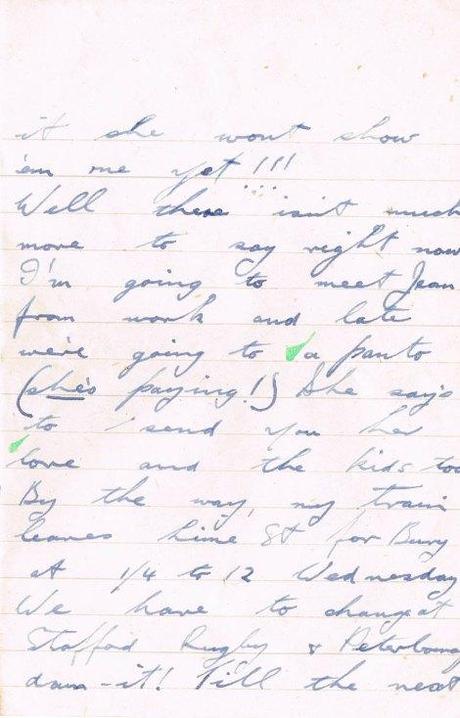 it she wont show
'em me yet!!!
Well there isn't much
more to say right now
I'm going to meet Jean
from work and late
we're going to a panto
(she's paying!) She says
to send you her
love and the kids too
By the way, my train
leaves Lime St for Bury
at 1/4 to 12 Wednesday
We have to change at
Stafford Rugby & Peterboroug
damn-it! Till the next